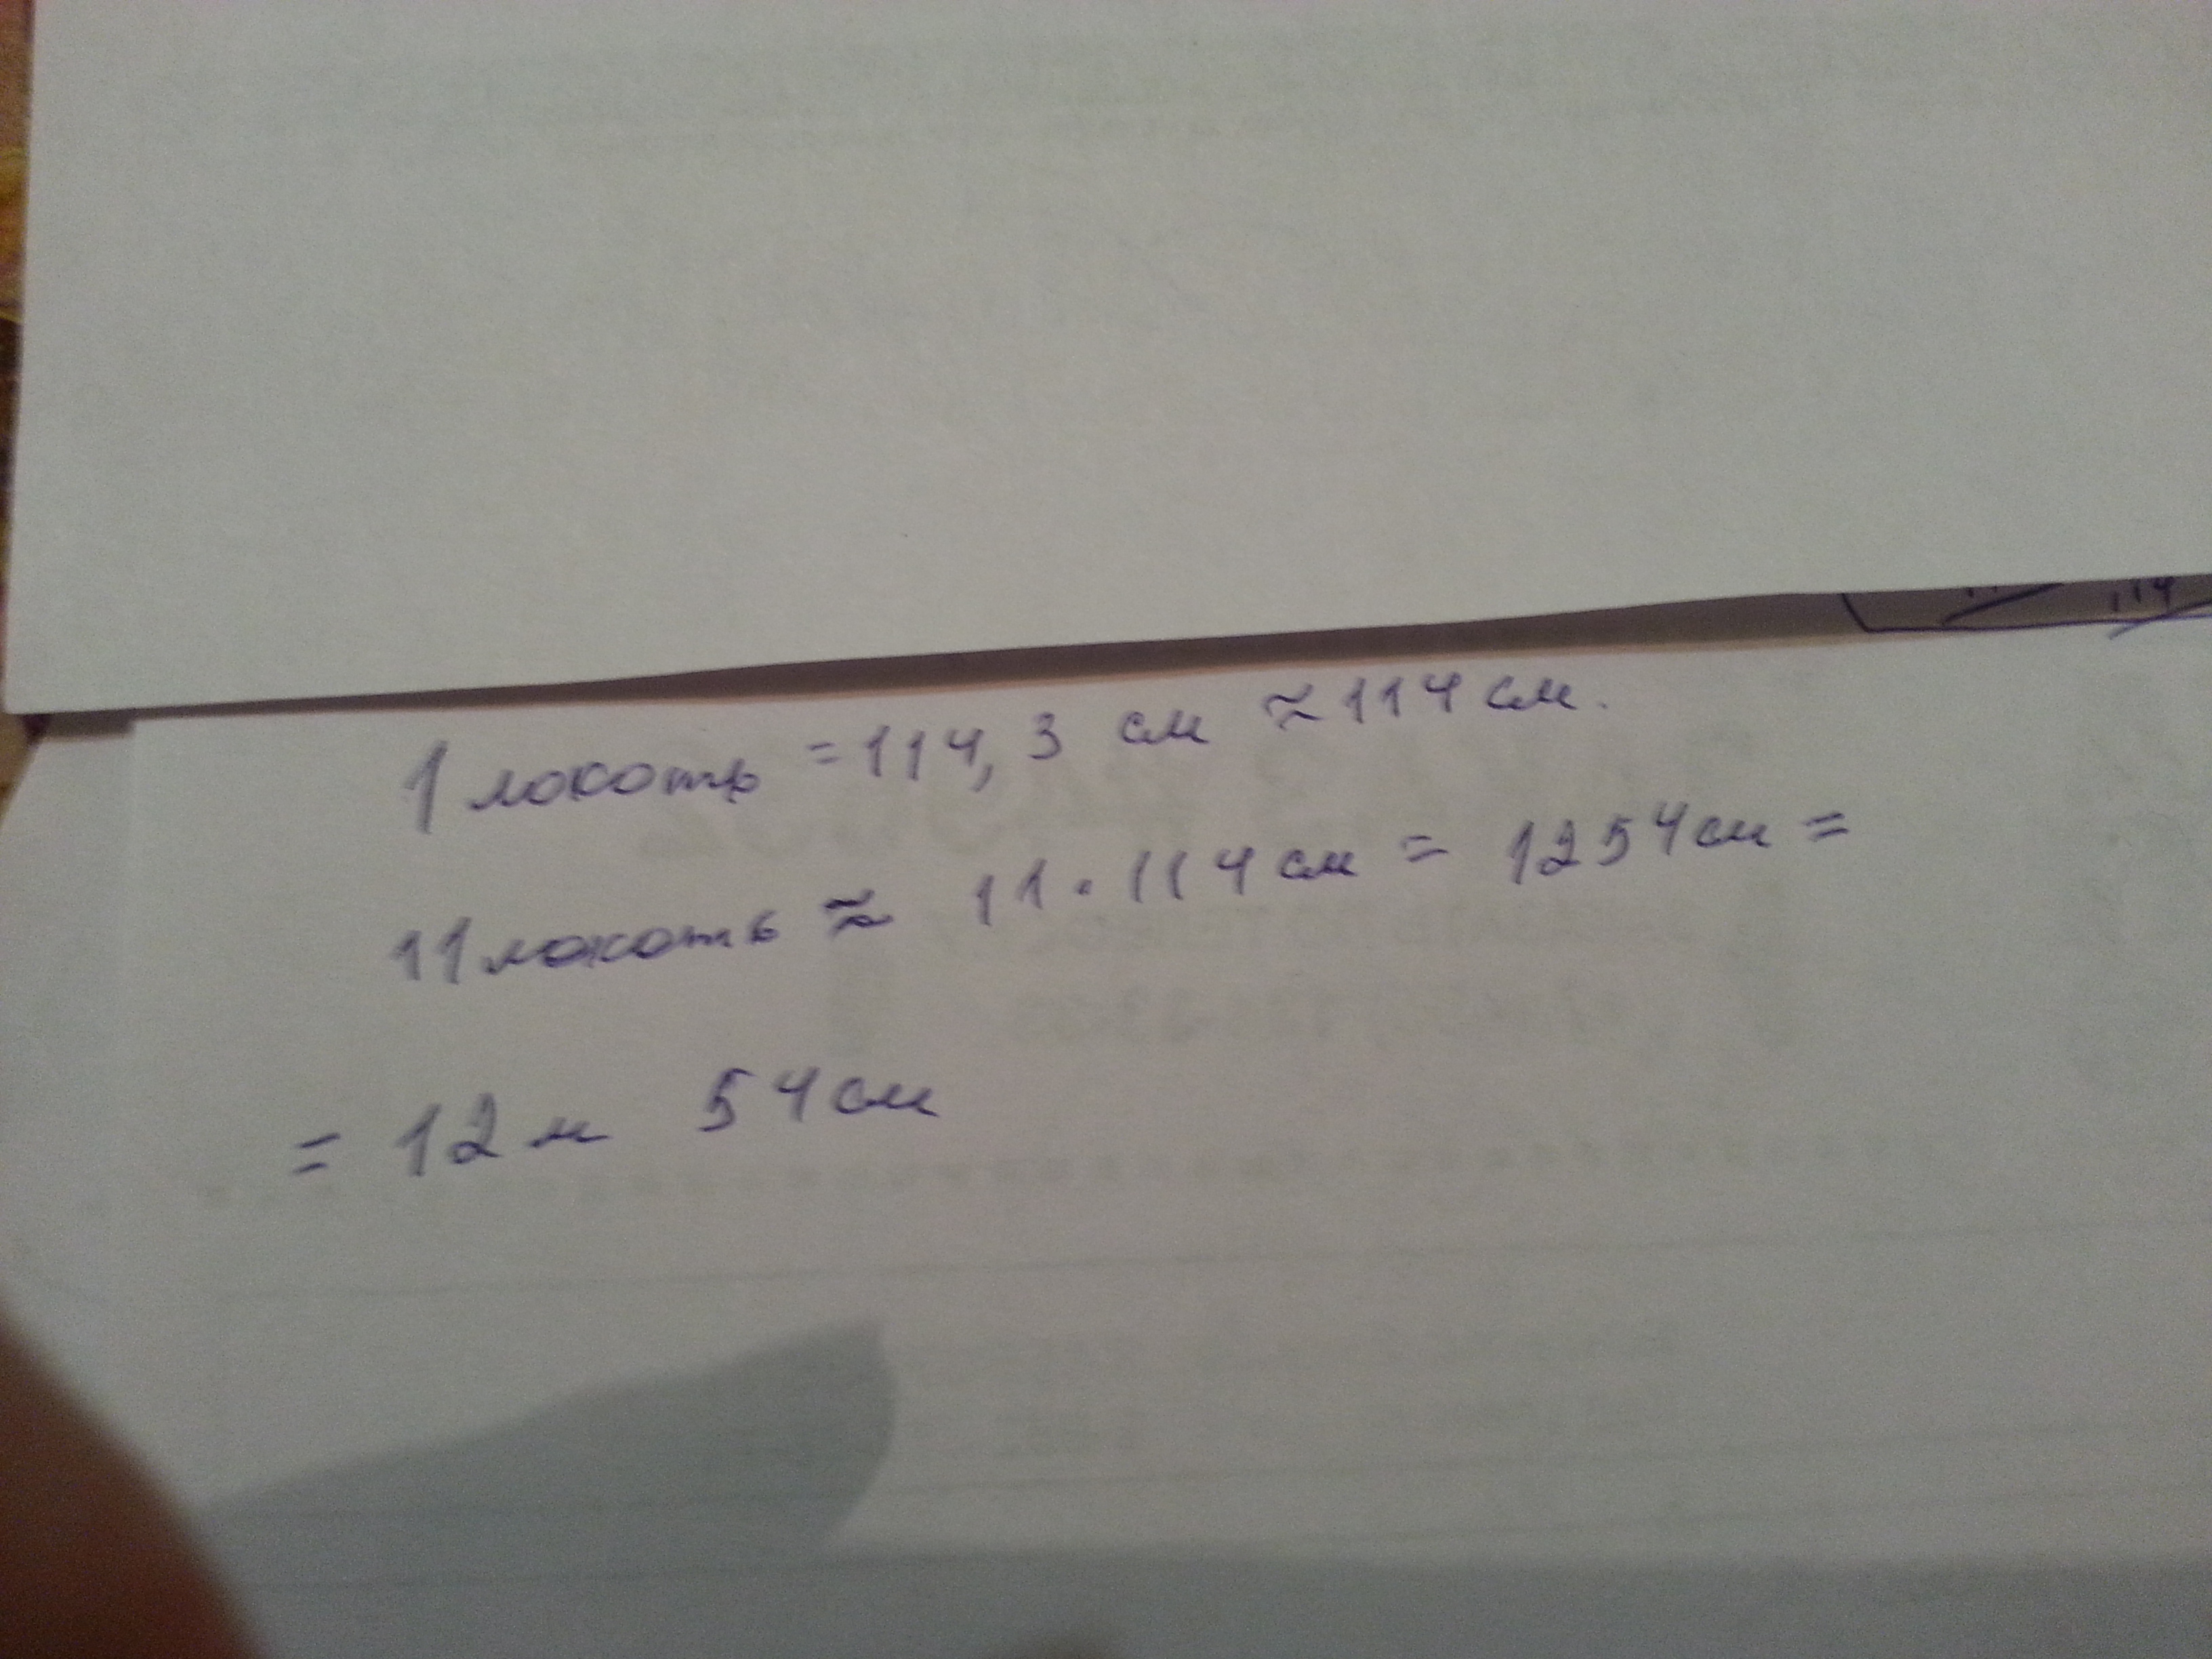 1 локоть = 114,3 см ≈ 114 см.
11 локоть ≈ 11 · 114 см = 1254 см =
= 12 м 54 см